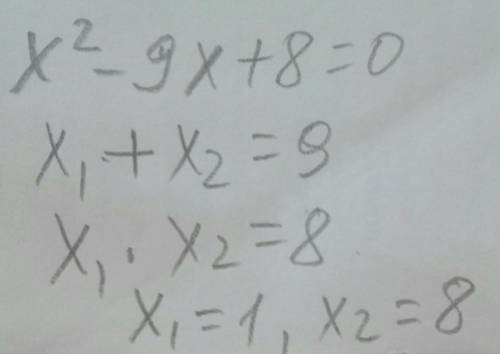 x² - 9x + 8 = 0
x₁ + x₂ = 9
x₁ · x₂ = 8
x₁ = 1, x₂ = 8